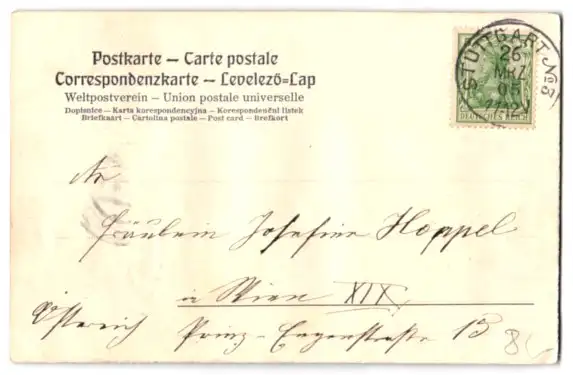 Postkarte – Carte postale
Correspondenzkarte – Levelező-Lap
Weltpostverein – Union postale universelle
Dopisnice – Karta korespondencyjna – Korespondenčnί listek
Briefkaart – Cartolina postale – Post card – Brefkort
STUTTGART No 3
26
MRZ
DEUTSCHES REICH
An
Fräulein Josefine Hoppel
in Wien XIX
Österreich Prinz-Eugenstraße 13